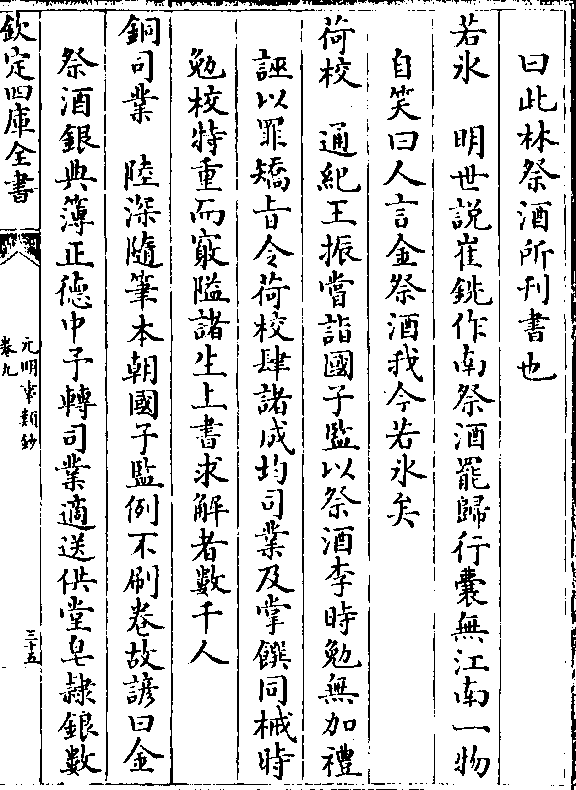 曰此林祭酒所刊書也
若氷　明世説崔銑作南祭酒罷歸行囊無江南一物
自笑曰人言金祭酒我今若氷矣
荷校　通紀王振嘗詣國子監以祭酒李時勉無加禮
誣以罪矯旨令荷校肆諸成均司業及掌饌同械時
勉校特重而窽隘諸生上書求解者數千人
銅司業　陸深隨筆本朝國子監例不刷卷故諺曰金
祭酒銀典簿正徳中予轉司業適送供堂皂隷銀數
欽定四庫全書
元明事類鈔
卷九
三十五